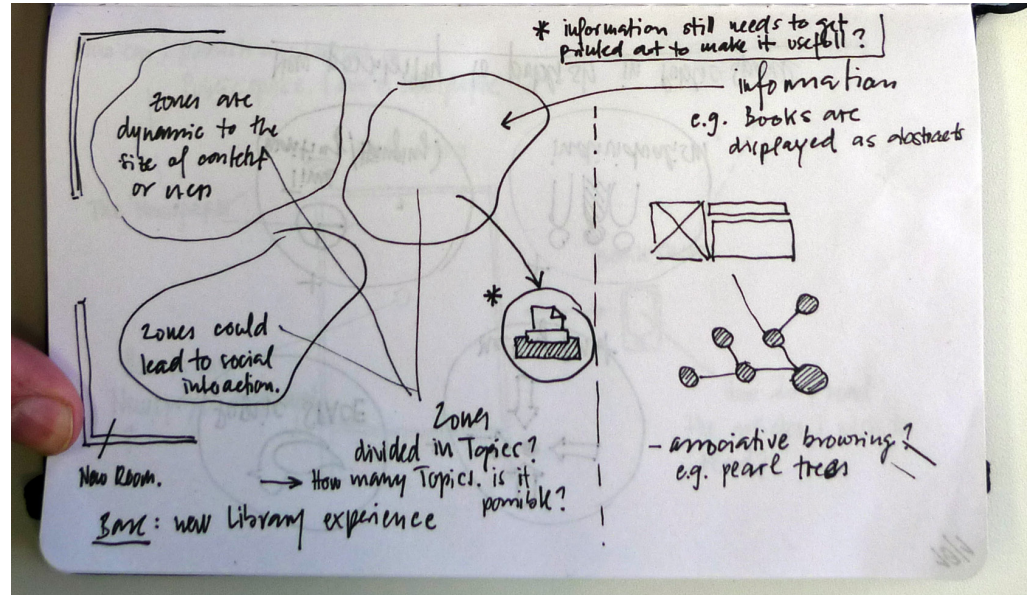 * information still needs to get
printed out to make it usefull?
information
e.g. Books are
displayed as abstracts
zones are
dynamic to the
size of content
or users
zones could
lead to social
interaction.
*
Zones
divided in Topics?
→ How many Topics. is it
possible?
New Room.
Base: new Library experience
- associative browsing?
e.g. pearl trees